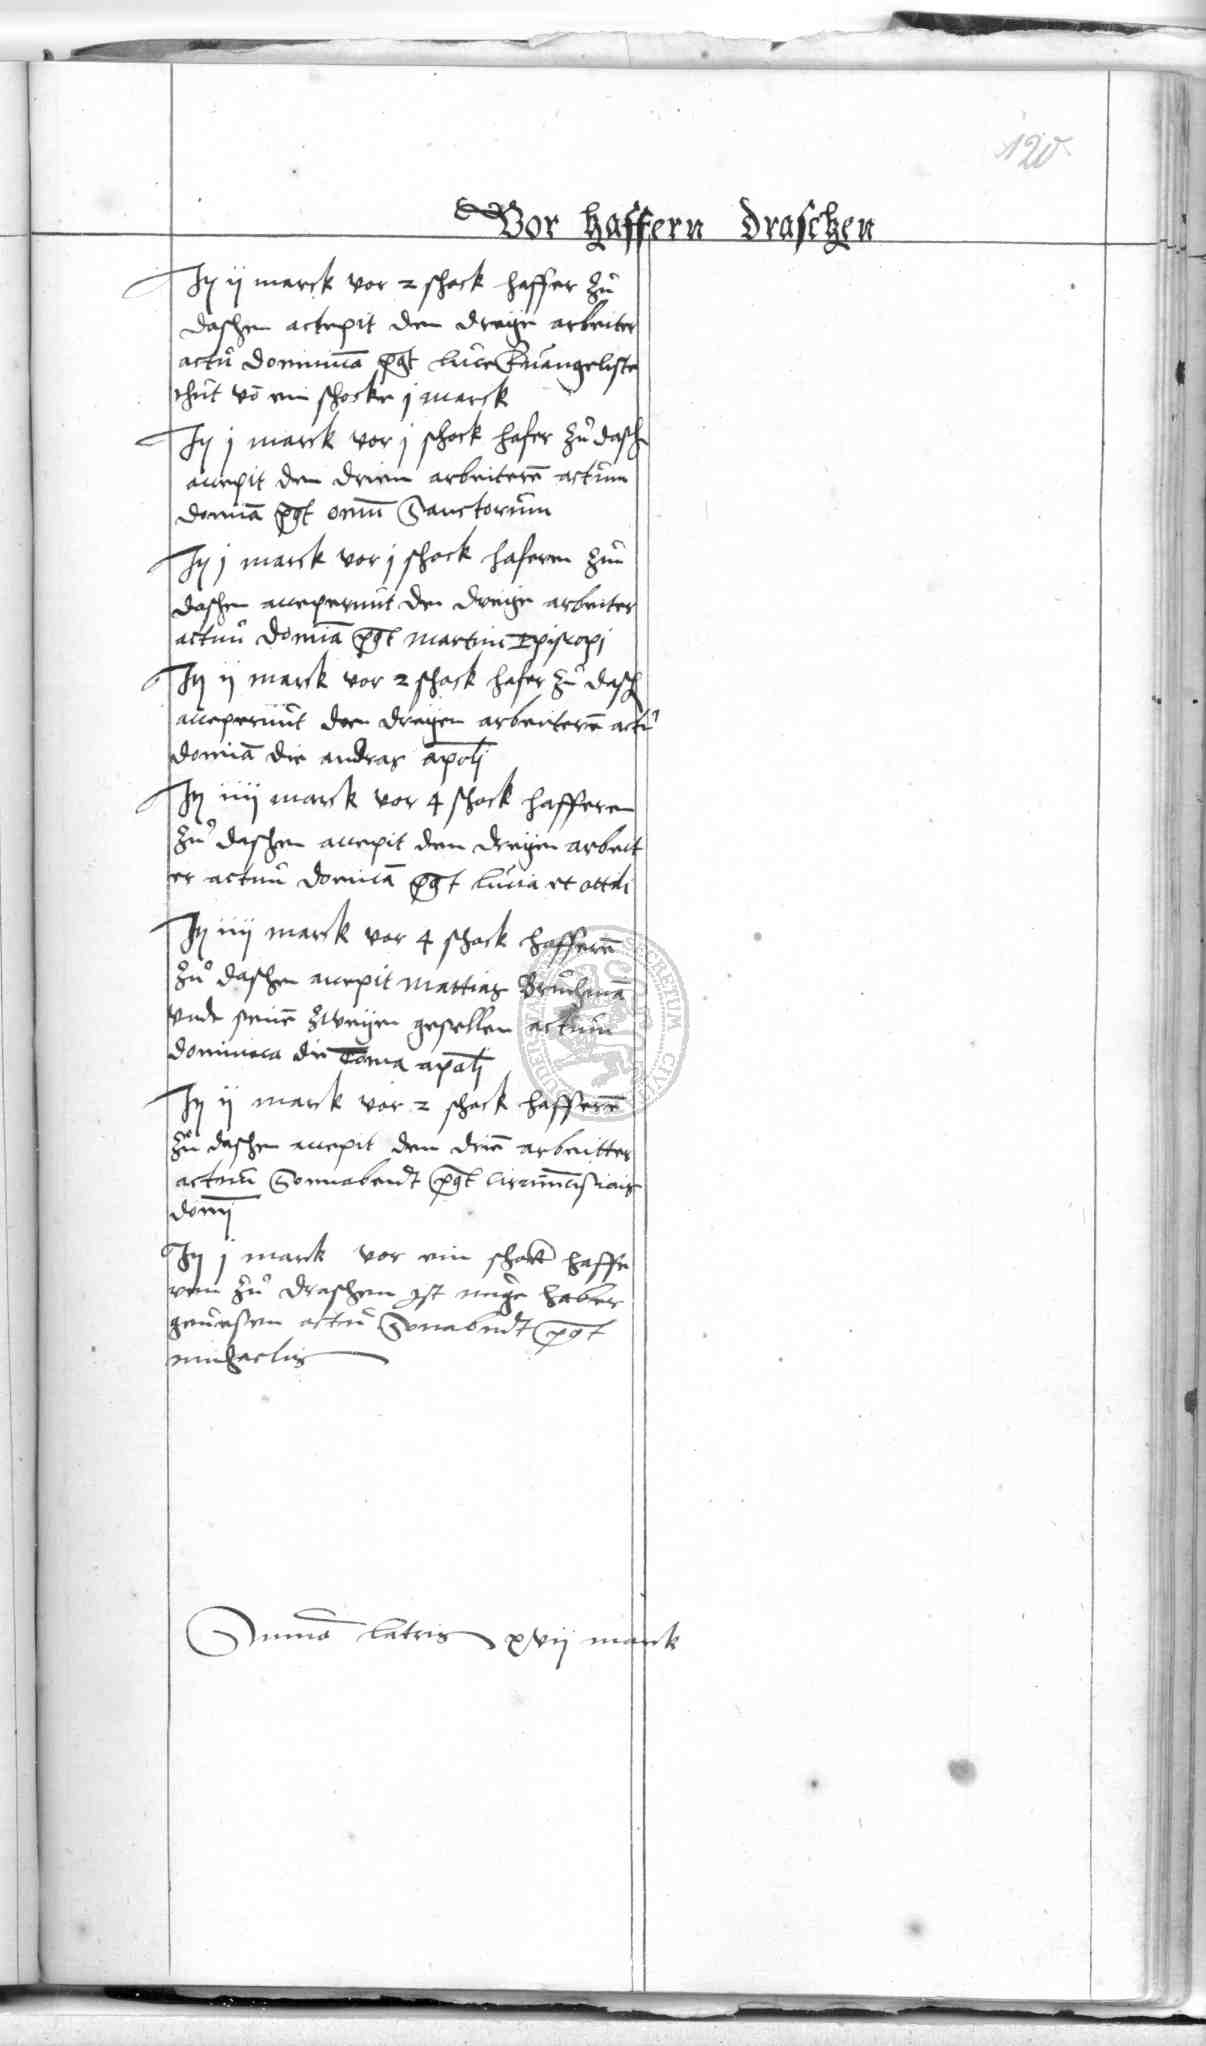 120
Vor haffern draschen
Itz ij marck vor 2 schock haffer zů
daschen accepit den dreye arbeiter
actũ dominicã pꝯt luce Ewangeliste
thut vō ein schocke j marck
Itz j marck vor j schock hafer zů dasch
accepit den drien arbeiterē actum
domicã pꝯt omniũ Sanctorum
Itz j marck vor j schock haferen zů
daschen acceperunt den dreige arbeiter
actum domicã pꝯt martini Episcopi
Itz ij marck vor 2 schock hafer zů dasch
acceperunt den dreyen arbeiterē actũ
domicã die andras apolj
Itz iiij marck vor 4 schock hafferen
zů daschen accepit den dreyen arbeit
er actum domicã pꝯt lucia et ottili
Itz iiij marck vor 4 schock hafferē
zů daschen accepit mattias Bruchmã
vnde seinē zweyen gesellen actum
dominica die Toma apolj
Itz ij marck vor 2 schock hafferē
zů daschen accepit den driē arbeitter
actum Sonnabendt pꝯt circumcisionis
domij
Itz j marck vor ein schock haffe
ren zů draschen ist nuge haber
gewesen actũ Sonabendt pꝯt
michaelis
Summa lateris xvij marck
SECRETUM CIVIUM